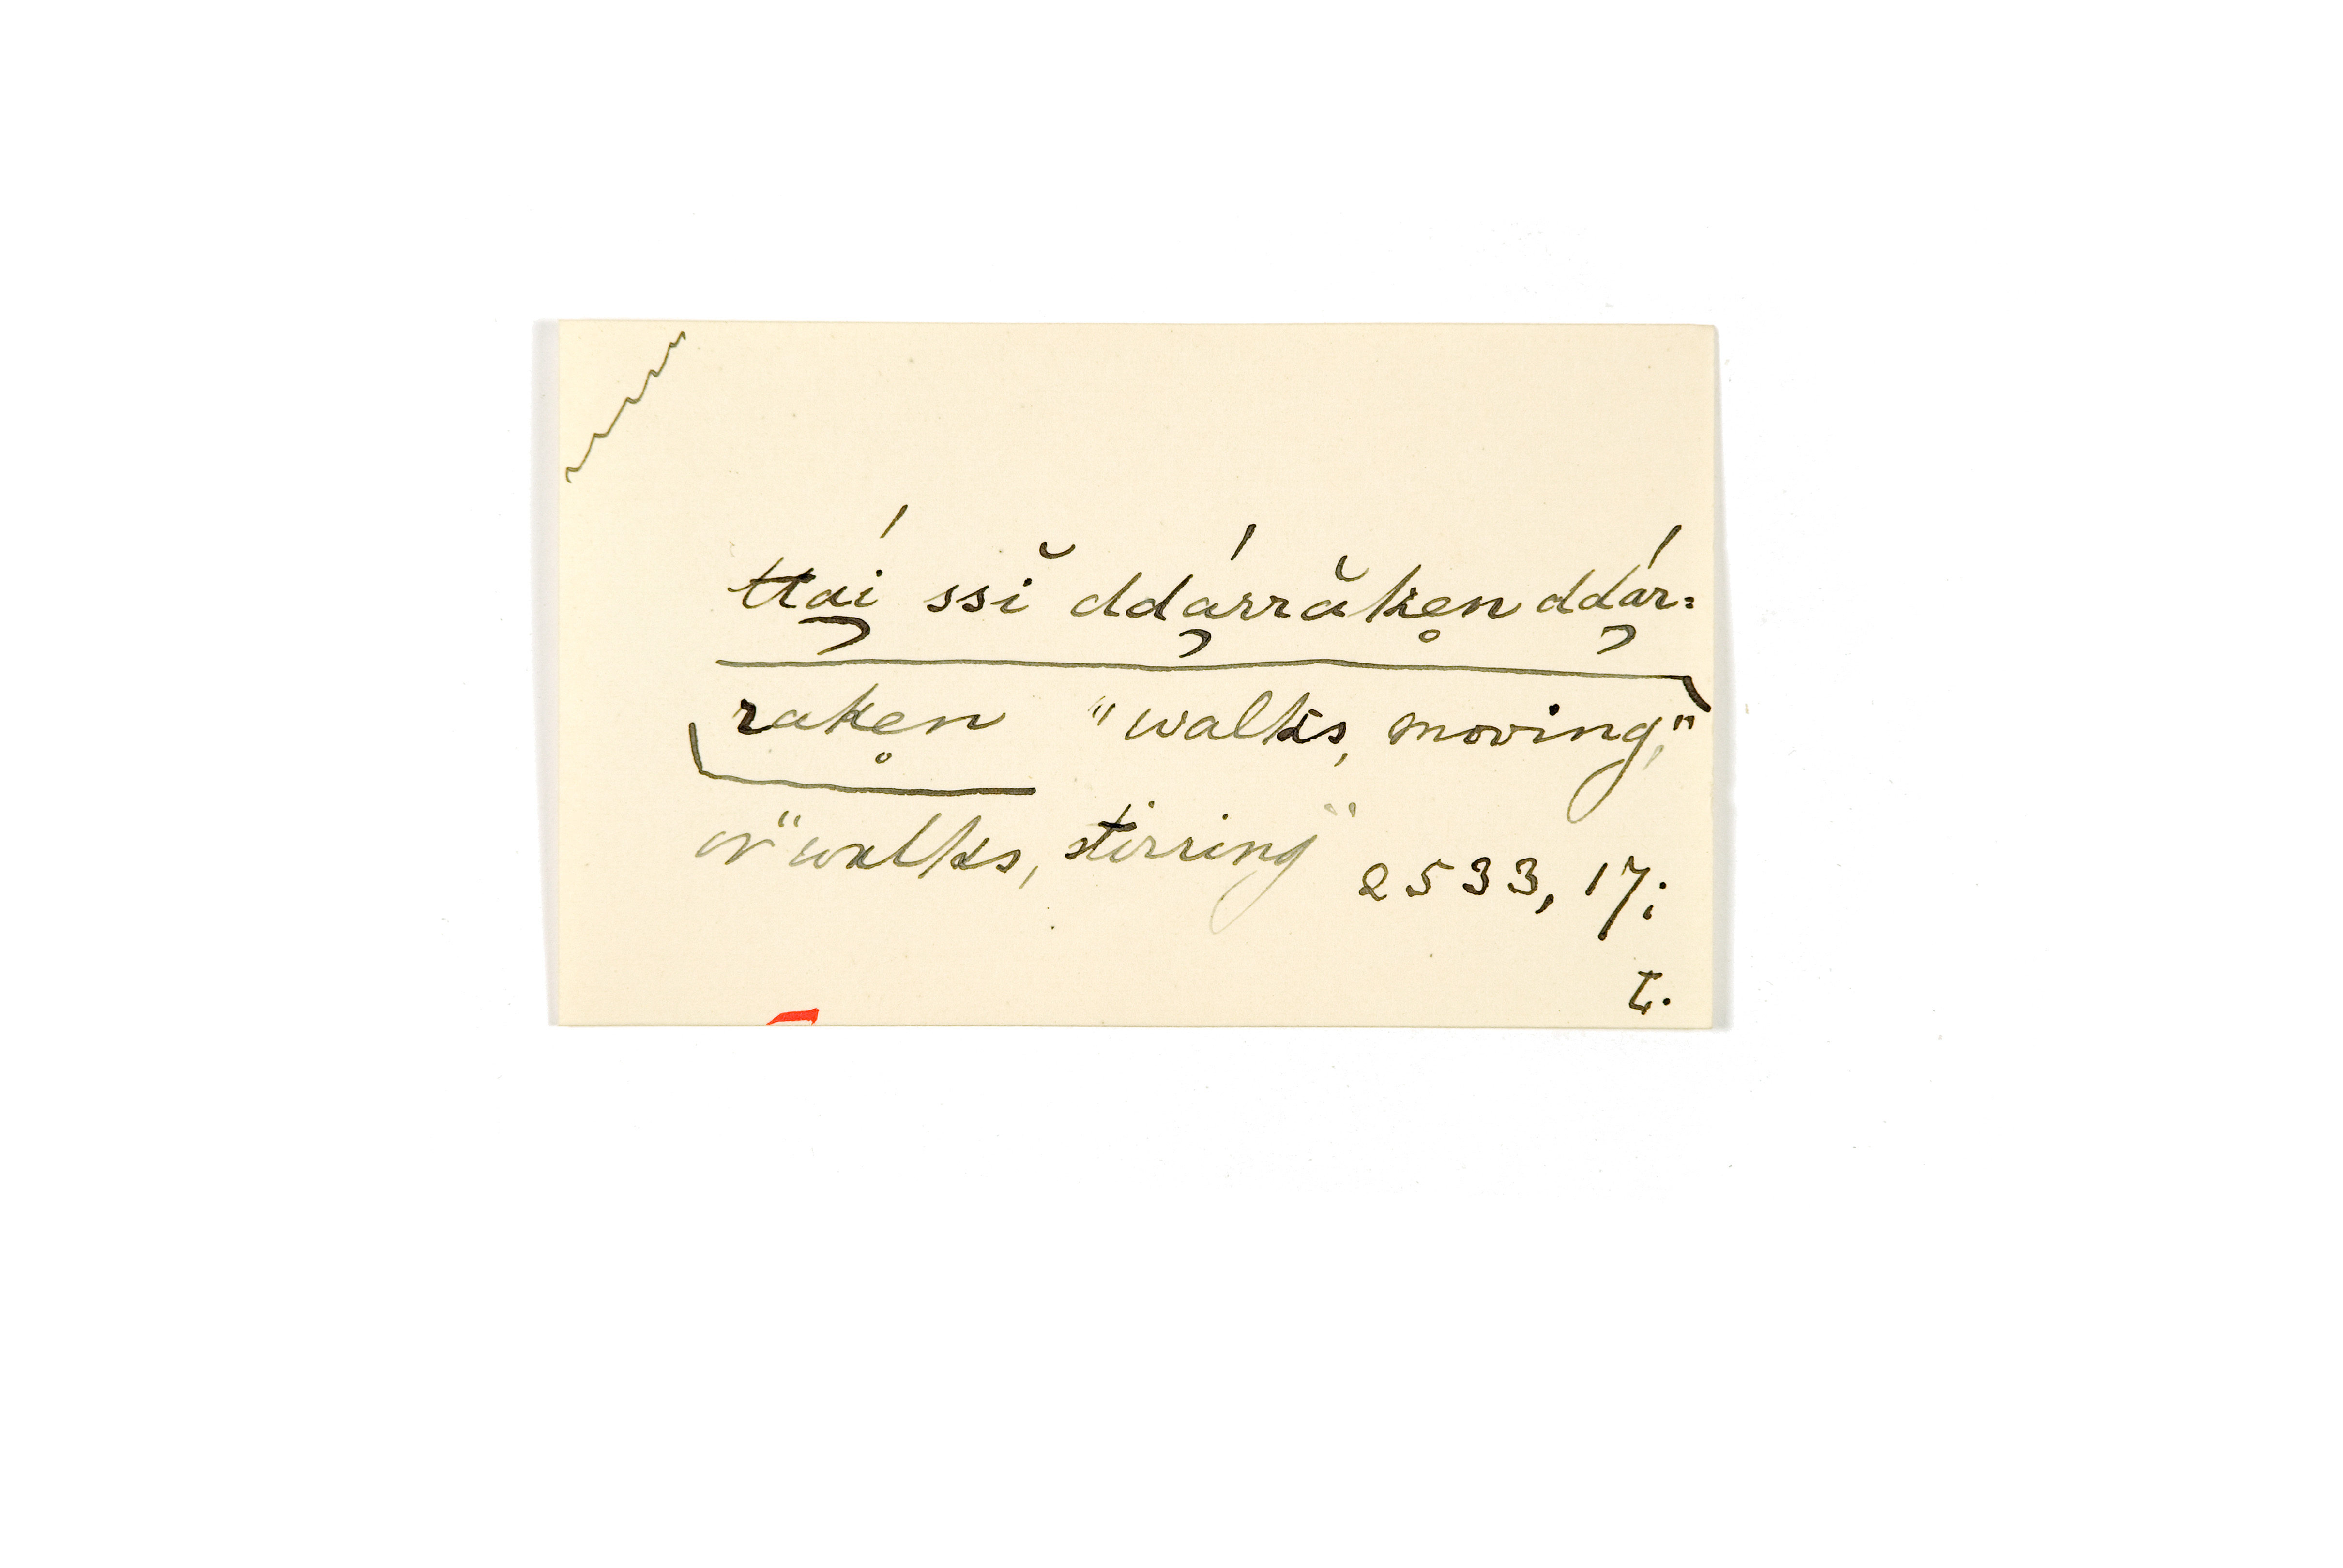 ttaí ssĭ ddárrăken̥ ddár=
raken̥ "walks, moving,"
or "walks, stirring"
2533, 17;
t.